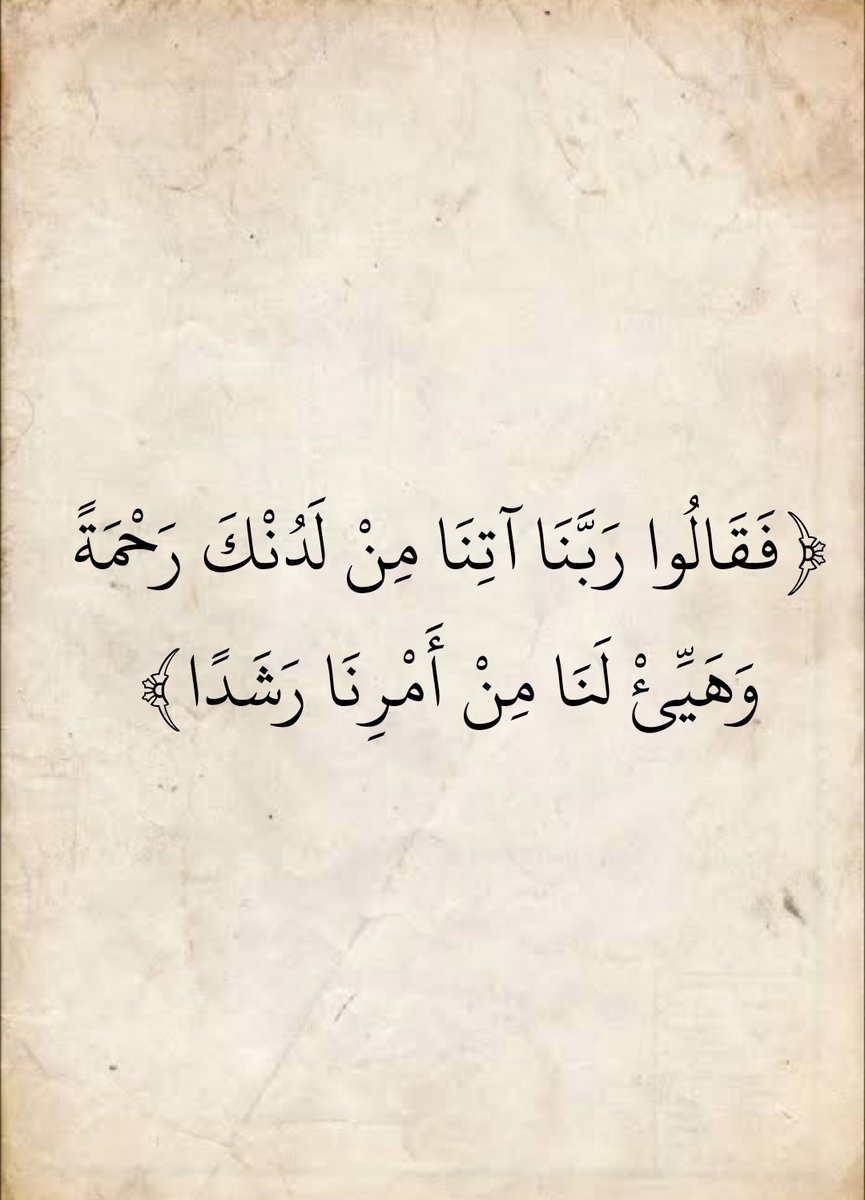 ﴿فَقَالُوا رَبَّنَا آتِنَا مِنْ لَدُنْكَ رَحْمَةً
وَهَيِّئْ لَنَا مِنْ أَمْرِنَا رَشَدًا﴾